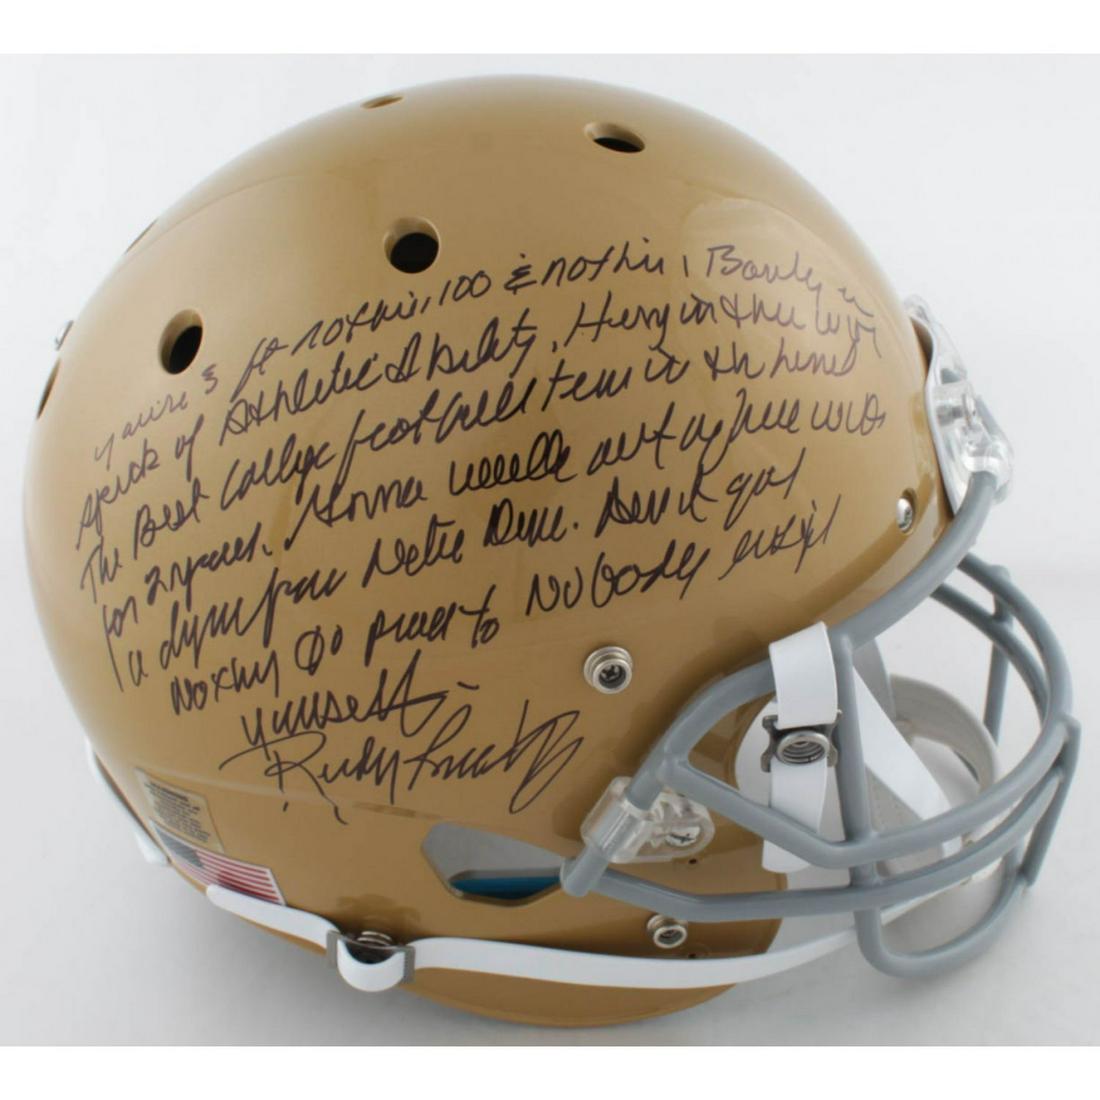 You're 5 ft nothin, 100 & nothin, Barely a
speck of Athletic Ability. Hung in there with
The Best College football team in the land
for 2 years. Gonna walk out of here with
a degree from Notre Dame. Don't got
Nothing to prove to Nobody except
yourself
Rudy Ruettiger